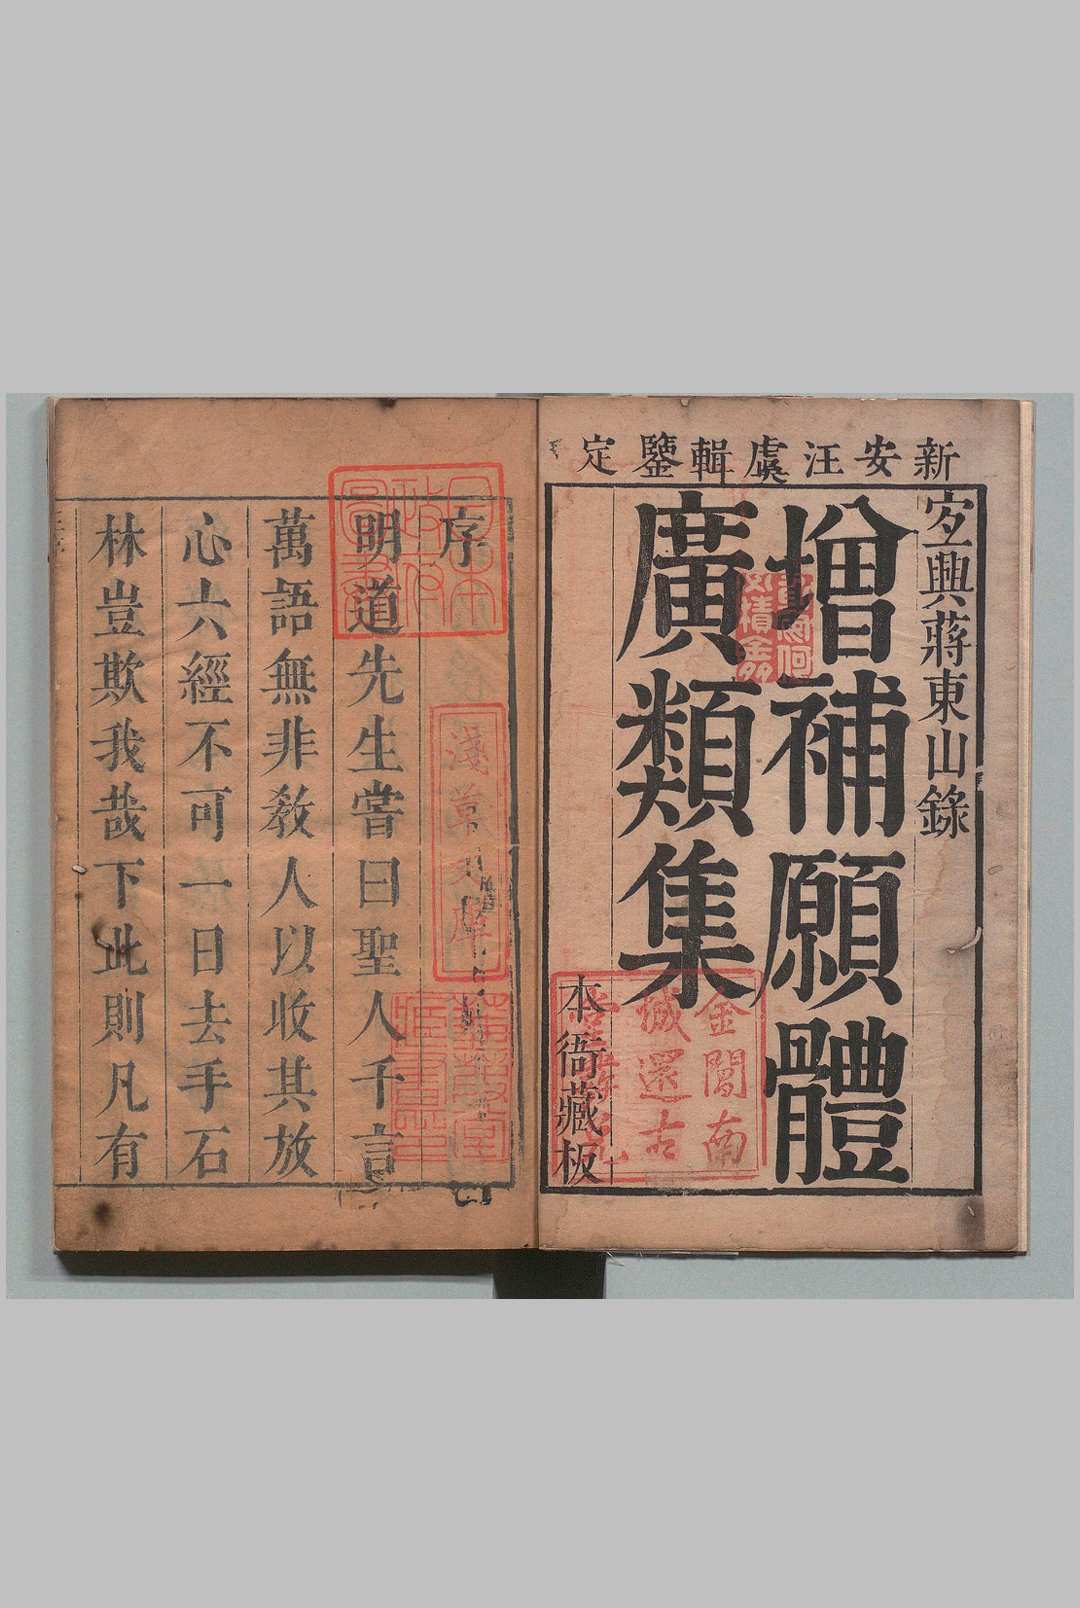 新安汪虞輯鑒定
宐興蔣東山錄
增補願體
廣類集
本衙藏板
金閶南
城還古
日本
政府
圖書
淺草文庫
序
明道先生嘗曰聖人千言
萬語無非敎人以收其放
心六經不可一日去手石
林豈欺我哉下此則凡有